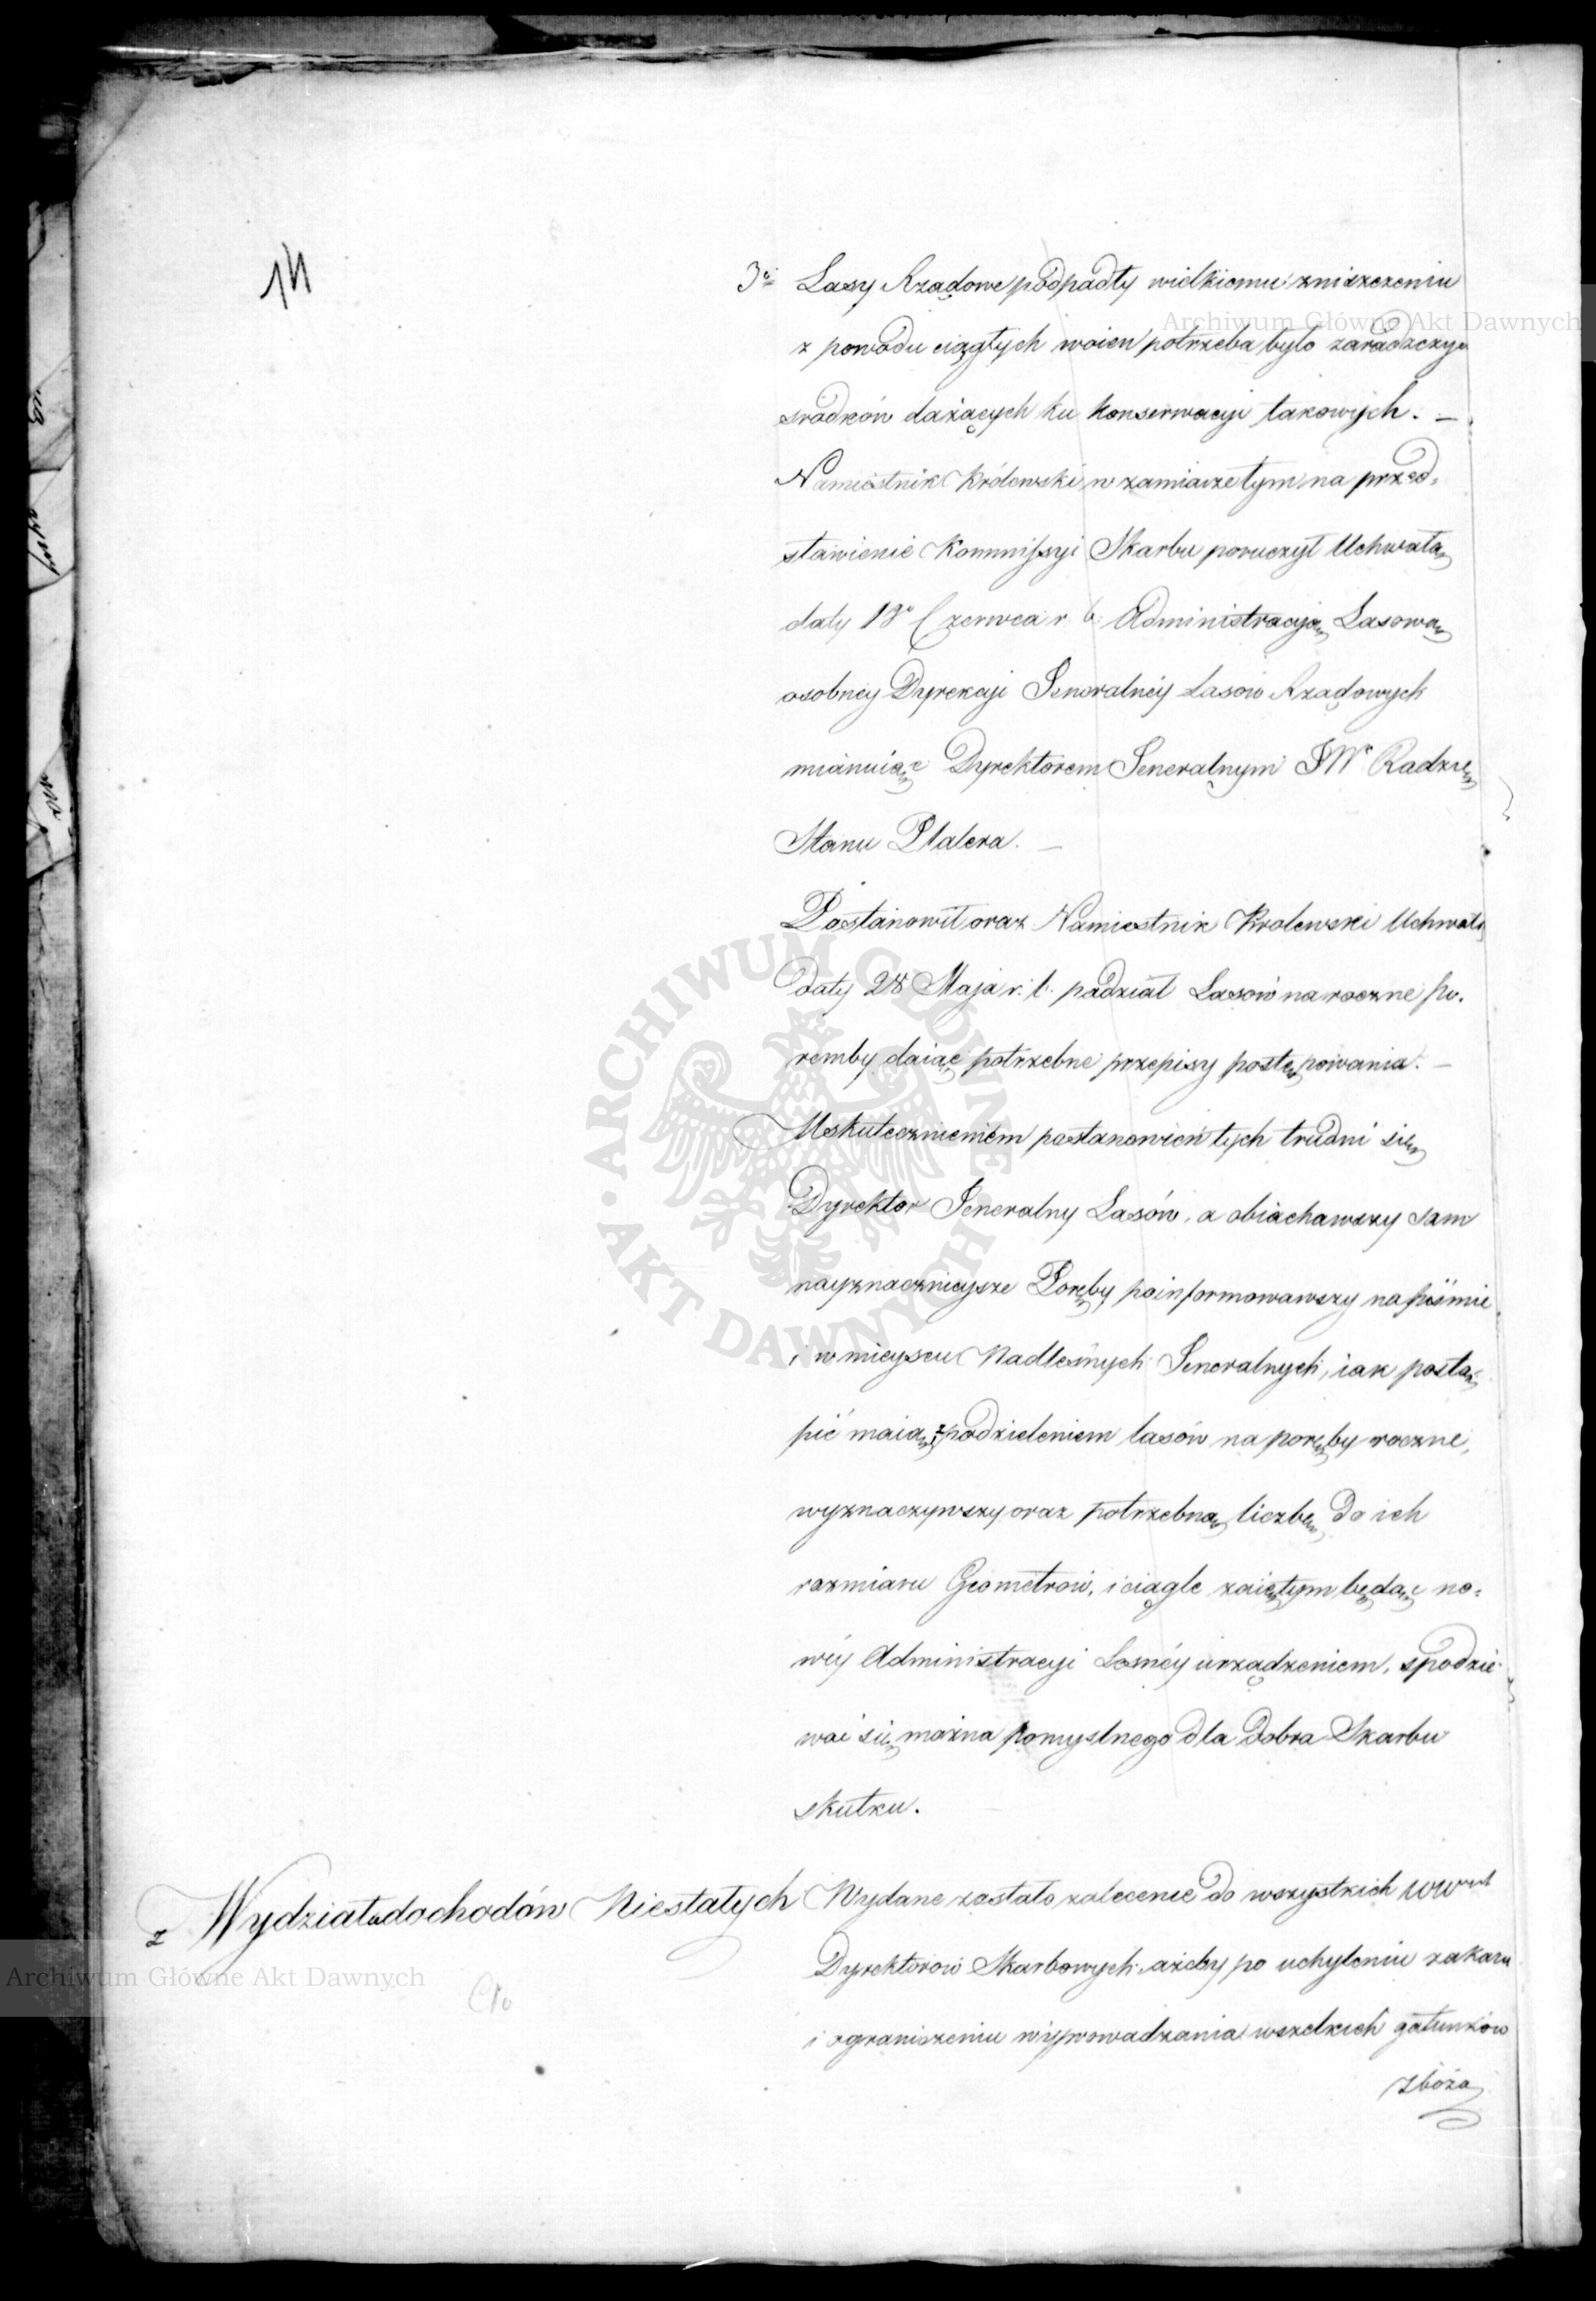 14
3º Lasy Rządowe podpadły wielkiemu zniszczeniu
z powodu ciągłych woien potrzeba było zaradczych
srodków dążących ku konserwacyi takowych. —
Namiestnik Królewski w zamiarze tym na przed=
stawienie Kommissyi Skarbu poruczył Uchwałą
daty 18º Czerwca r. b. Administracyą Lasową
osobney Dyrekcyi Jeneralnéy Lasów Rządowych
mianuiąc Dyrektorem Jeneralnym JWº Radzcę
Stanu Platera. —
Postanowił oraz Namiestnik Krolewski Uchwałą
daty 28 Maja r. b. podział Lasow na roczne po=
remby daiąc potrzebne przepisy postępowania. —
Uskutecznieniem postanowień tych trudni się
Dyrektor Jeneralny Lasów, a obiachawszy sam
nayznacznieysze Poręby poinformowawszy na piśmie
i w mieyscu Nadleśnych Jeneralnych, iak postą=
pić maią z podzieleniem lasów na poręby roczne,
wyznaczywszy oraz potrzebną liczbę do ich
rozmiaru Geometrow, i ciągle zaiętym będąc no=
wéy Administracyi Lesnéy urządzeniem, spodzie=
wać się można pomyslnego dla Dobra Skarbu
skutku.
z Wydziału dochodów Niestałych
Wydane zostało zalecenie do wszystkich WWnych
Dyrektorow Skarbowych, ażeby po uchyleniu zakazu
i ograniczeniu wyprowadzania wszelkich gatunków
zboża
Archiwum Główne Akt Dawnych
Archiwum Główne Akt Dawnych
ARCHIWUM GŁÓWNE AKT DAWNYCH